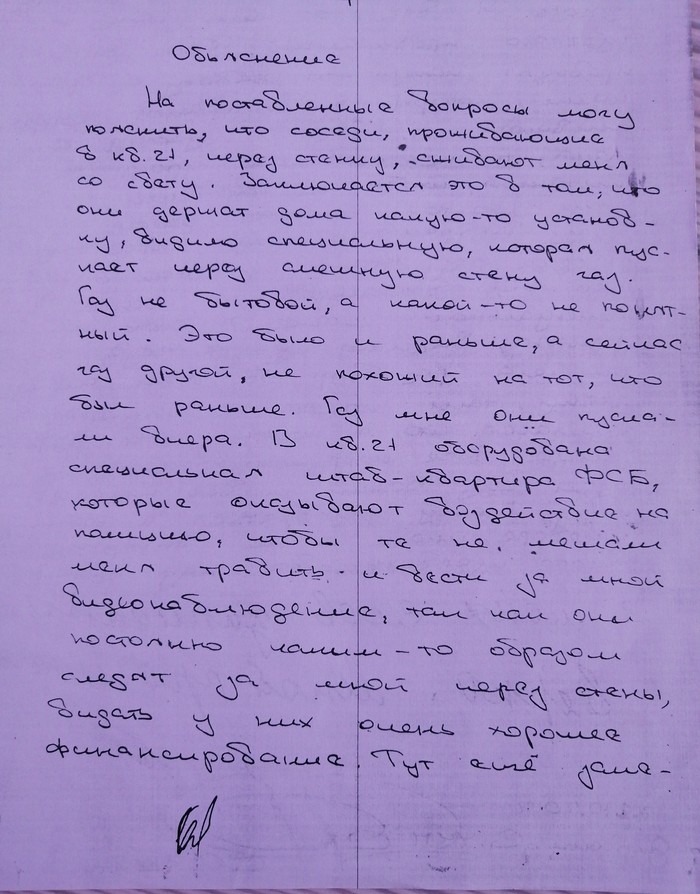 Объяснение
На поставленные вопросы могу
пояснить, что соседи, проживающие
в кв. 21, через стенку, сживают меня
со свету. Заключается это в том, что
они держат дома какую-то установ-
ку, видимо специальную, которая пус-
кает через смежную стену газ.
Газ не бытовой, а какой-то не понят-
ный. Это было и раньше, а сейчас
газ другой, не похожий на тот, что
был раньше. Газ мне они пуска-
ли вчера. В кв. 21 оборудована
специальная штаб-квартира ФСБ,
которые оказывают воздействие на
полицию, чтобы та не мешали
меня травить и вести за мной
видеонаблюдение, так как они
постоянно каким-то образом
следят за мной через стены,
видать у них очень хорошее
финансирование. Тут ещё зама-